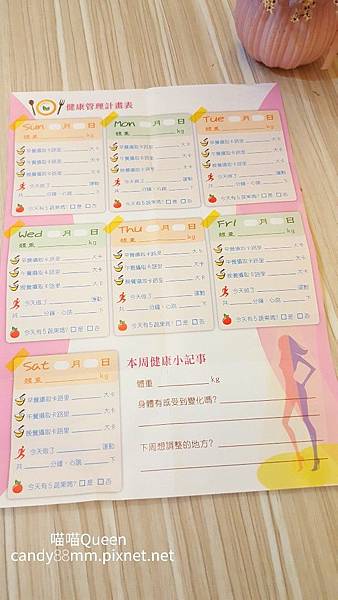 健康管理計畫表
Sun 月 日
體重 kg
早餐攝取卡路里 大卡
午餐攝取卡路里 大卡
晚餐攝取卡路里 大卡
今天做了 運動
共 分鐘，心跳 下
今天有5蔬果嗎? 是 否
Mon 月 日
體重 kg
早餐攝取卡路里 大卡
午餐攝取卡路里 大卡
晚餐攝取卡路里 大卡
今天做了 運動
共 分鐘，心跳 下
今天有5蔬果嗎? 是 否
Tue 月 日
體重 kg
早餐攝取卡路里 大卡
午餐攝取卡路里 大卡
晚餐攝取卡路里 大卡
今天做了 運動
共 分鐘，心跳 下
今天有5蔬果嗎? 是 否
Wed 月 日
體重 kg
早餐攝取卡路里 大卡
午餐攝取卡路里 大卡
晚餐攝取卡路里 大卡
今天做了 運動
共 分鐘，心跳 下
今天有5蔬果嗎? 是 否
Thu 月 日
體重 kg
早餐攝取卡路里 大卡
午餐攝取卡路里 大卡
晚餐攝取卡路里 大卡
今天做了 運動
共 分鐘，心跳 下
今天有5蔬果嗎? 是 否
Fri 月 日
體重 kg
早餐攝取卡路里 大卡
午餐攝取卡路里 大卡
晚餐攝取卡路里 大卡
今天做了 運動
共 分鐘，心跳 下
今天有5蔬果嗎? 是 否
Sat 月 日
體重 kg
早餐攝取卡路里 大卡
午餐攝取卡路里 大卡
晚餐攝取卡路里 大卡
今天做了 運動
共 分鐘，心跳 下
今天有5蔬果嗎? 是 否
本周健康小記事
體重 kg
身體有感受到變化嗎?
下周想調整的地方?
喵喵Queen
candy88mm.pixnet.net